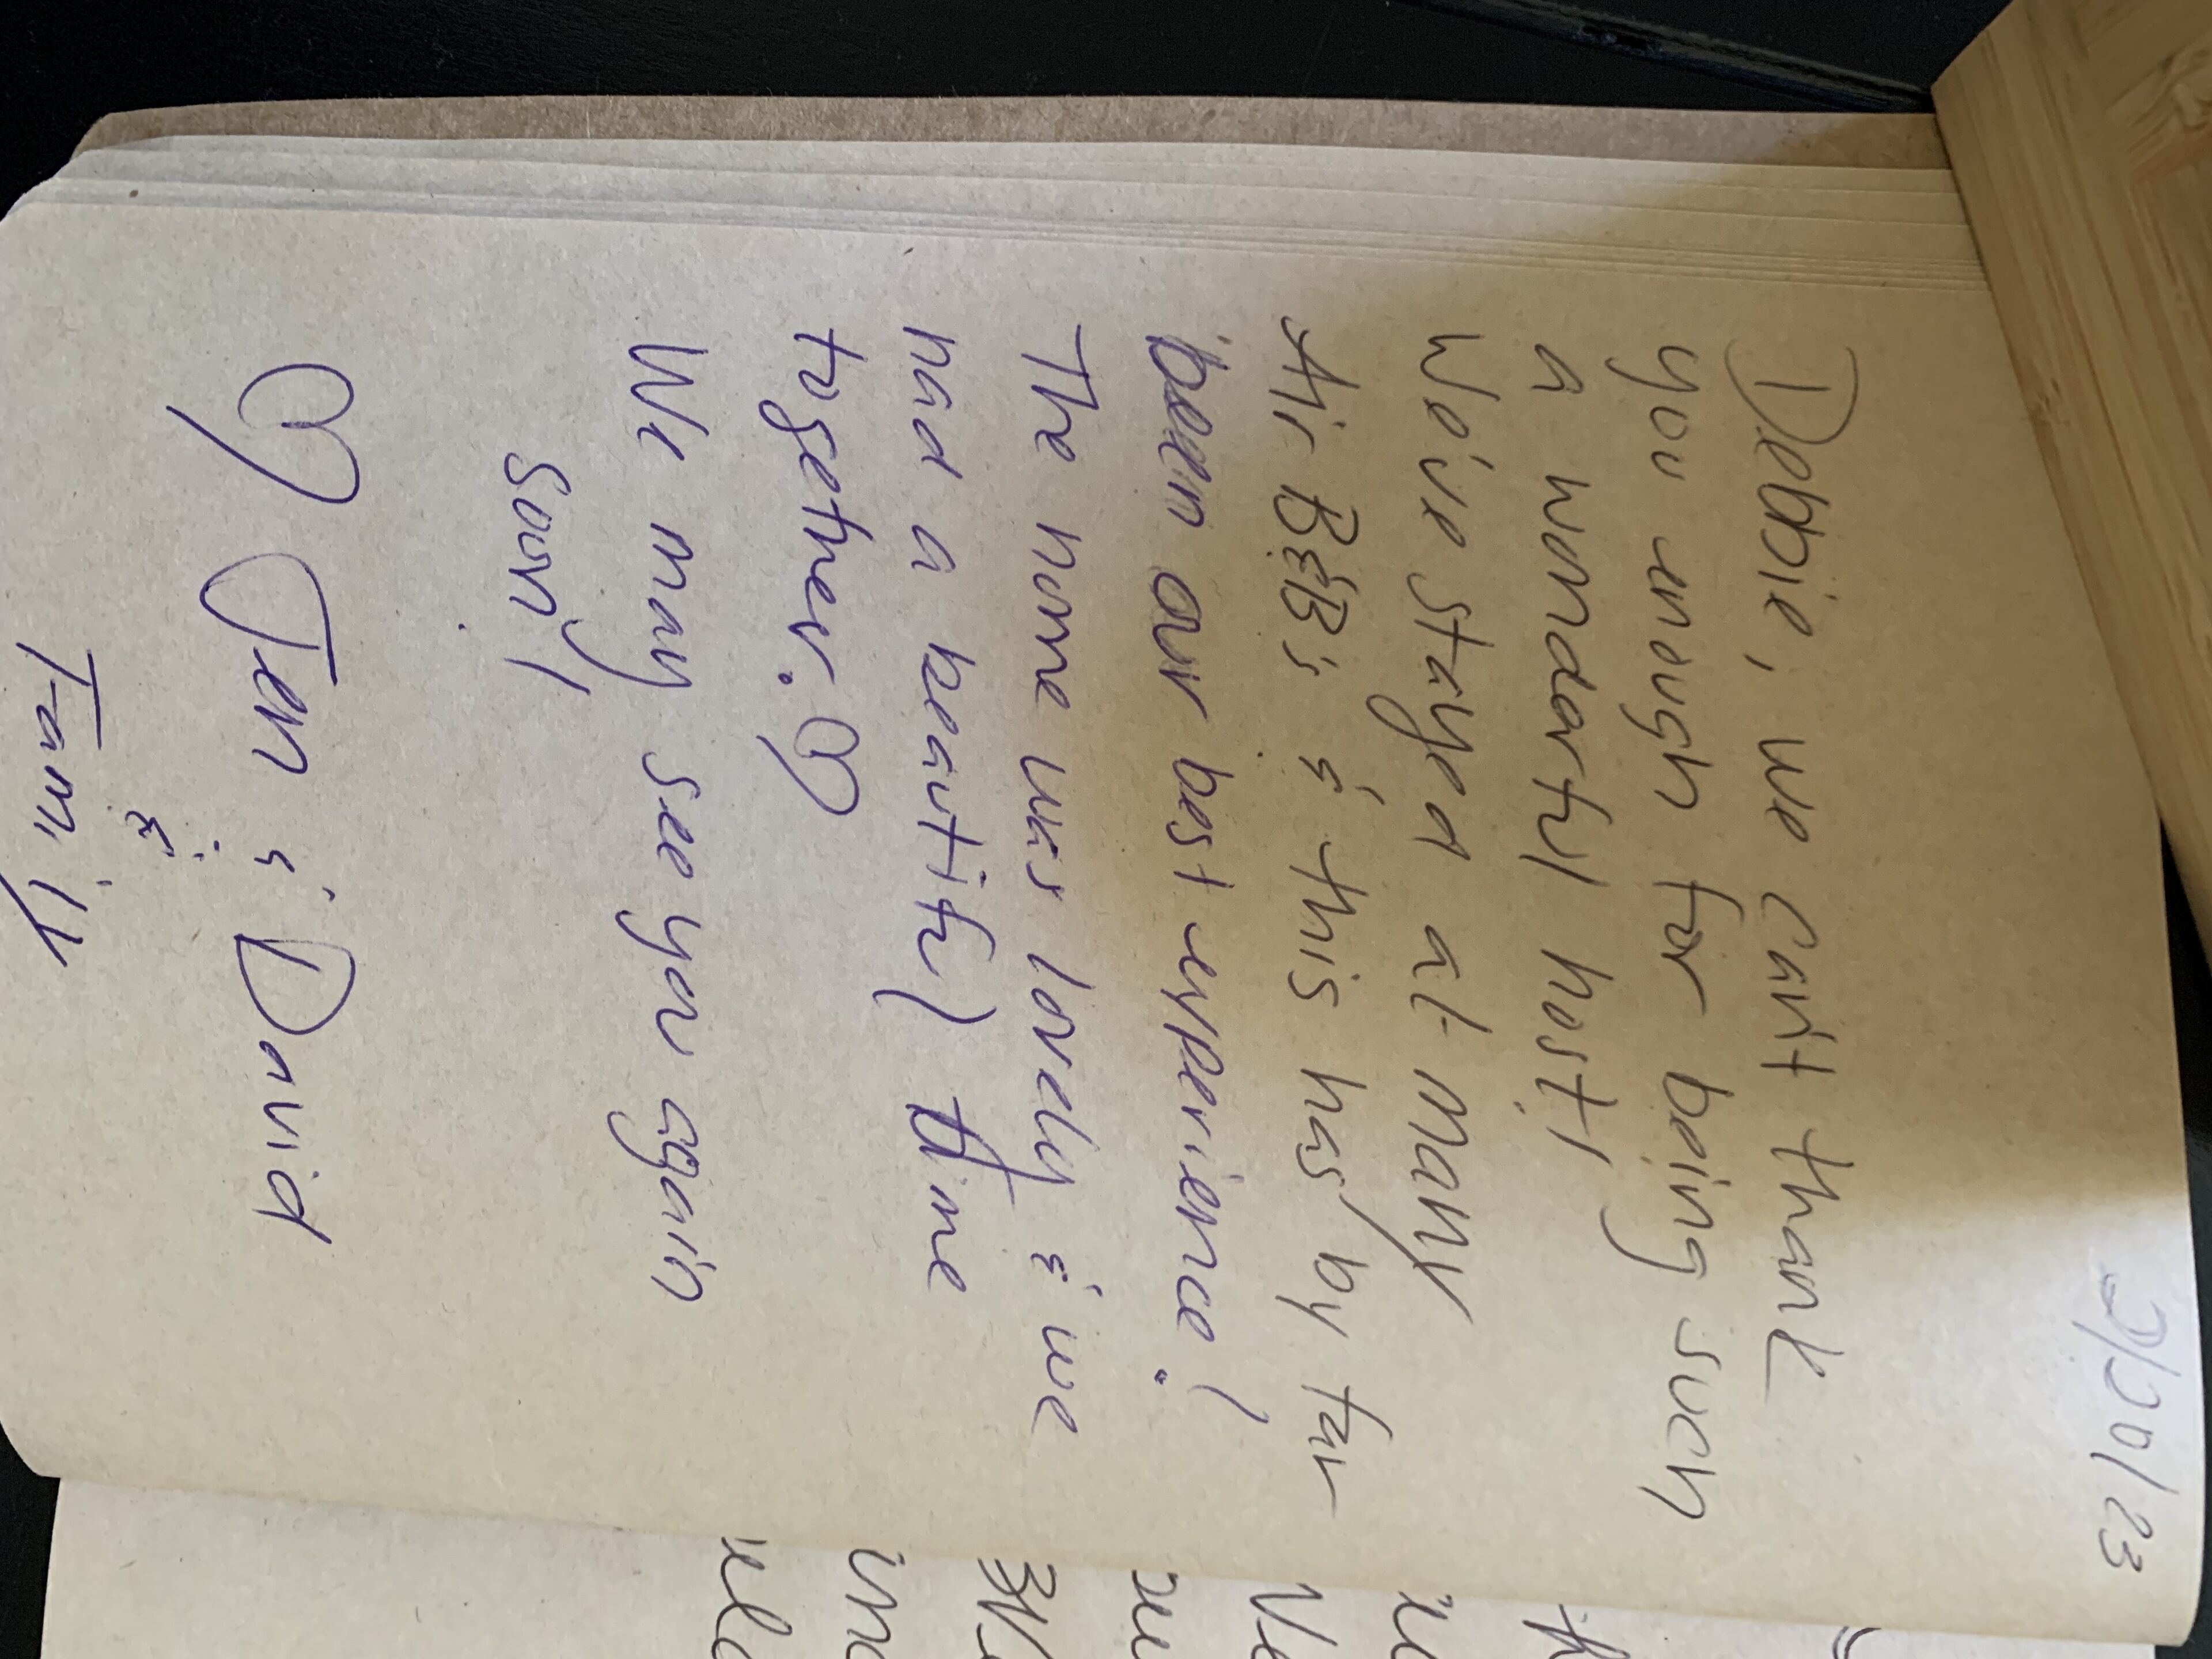 2/20/23
Debbie, we can't thank
you enough for being such
a wonderful host!
We've stayed at many
Air B&B's & this has by far
been our best experience!
The home was lovely & we
had a beautiful time
together. ♡
We may see you again
soon!
♡ Jen & David
&
Family